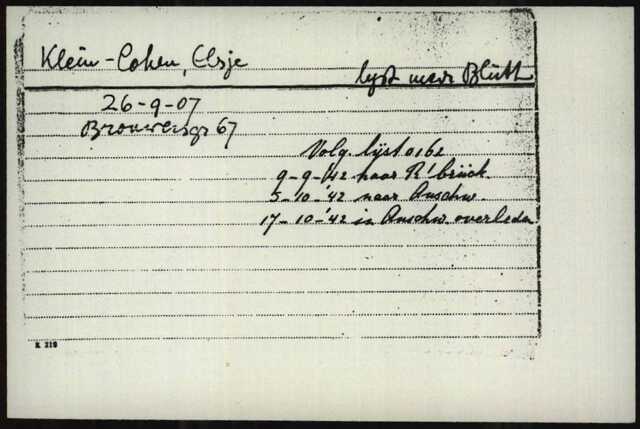 Klein-Cohen, Elsje
lijst mevr Blüth
26-9-07
Brouwersgr 67
Volg. lijst 0162
9-9-'42 naar R'brück.
5-10-'42 naar Auschw.
17-10-'42 in Auschw. overleden
K 319